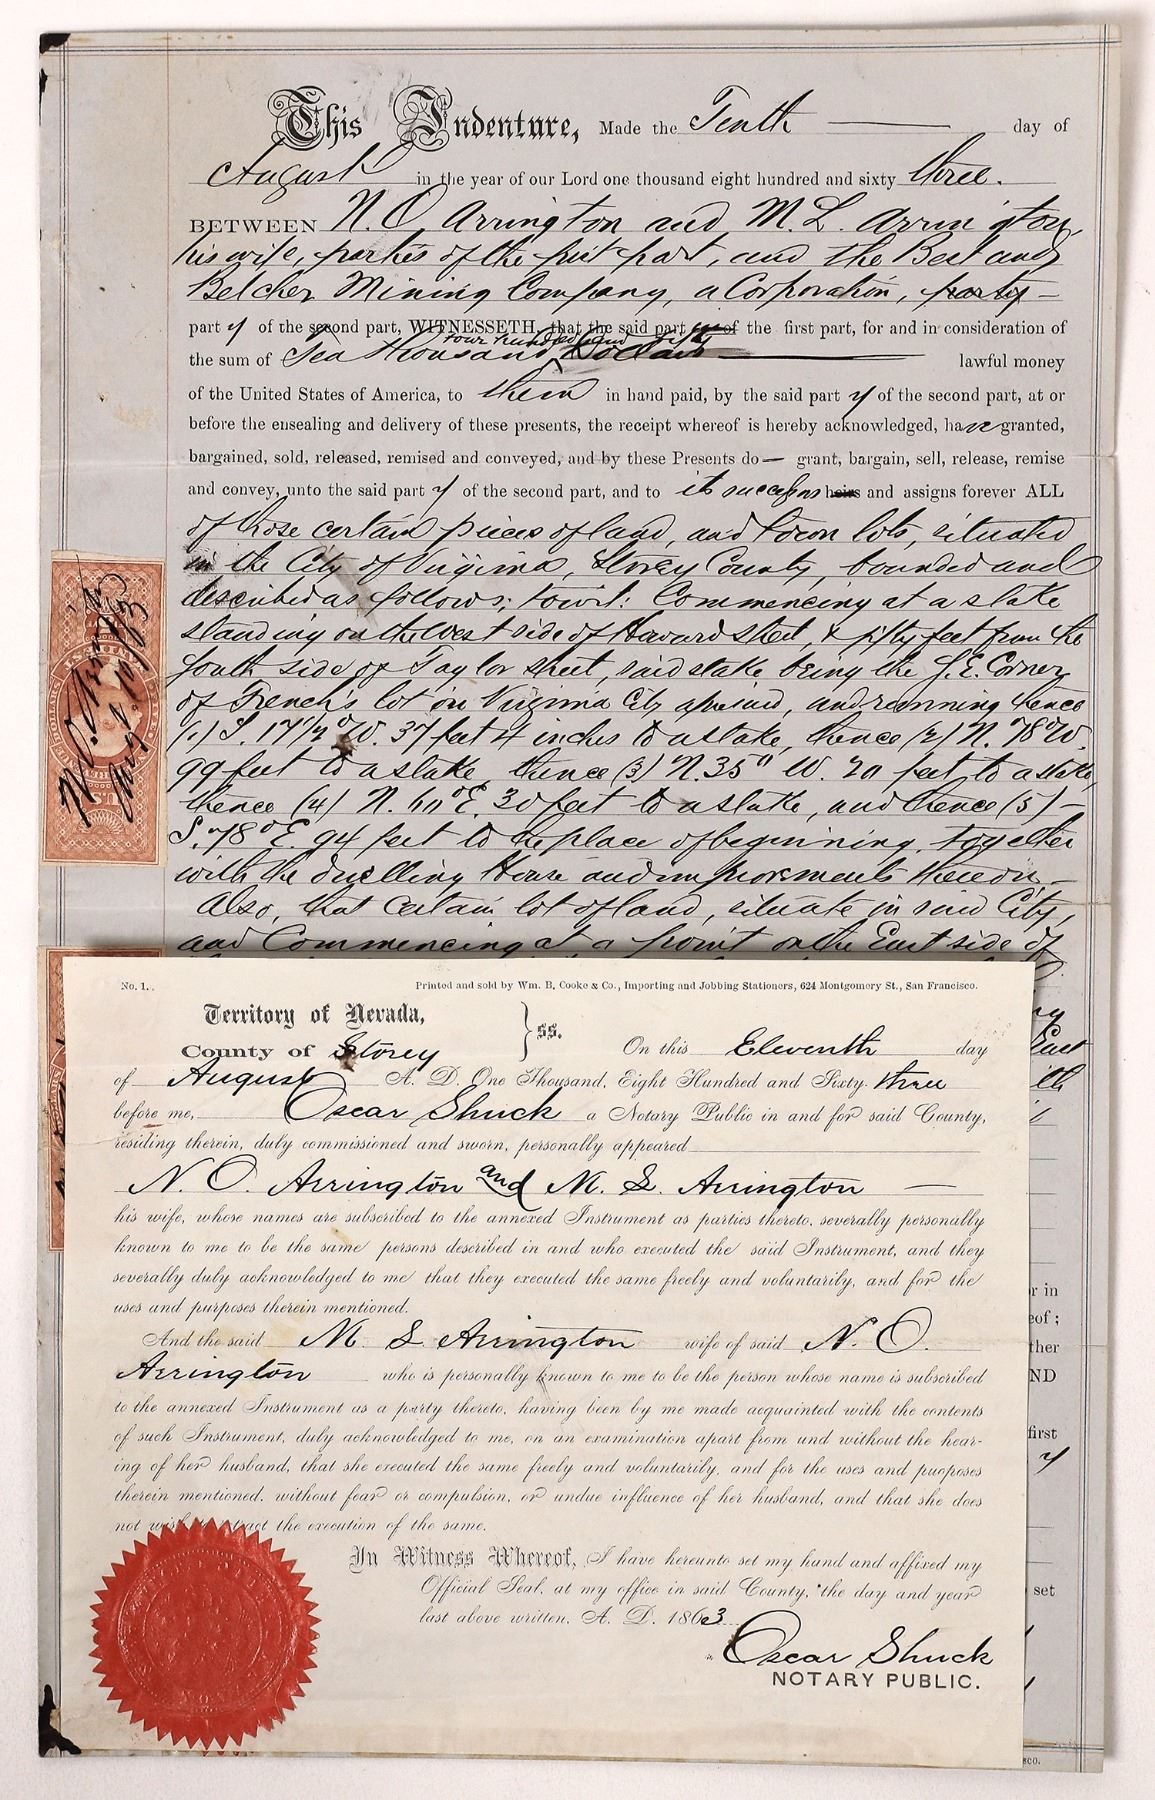 This Indenture, Made the Tenth day of
August in the year of our Lord one thousand eight hundred and sixty three.
BETWEEN N. O. Arrington and M. L. Arrington,
his wife, parties of the first part, and the Best and
Belcher Mining Company, a Corporation, party
part y of the second part, WITNESSETH, that the said part of the first part, for and in consideration of
four hundred and fifty
the sum of Ten thousand Dollars lawful money
of the United States of America, to them in hand paid, by the said part y of the second part, at or
before the ensealing and delivery of these presents, the receipt whereof is hereby acknowledged, have granted,
bargained, sold, released, remised and conveyed, and by these Presents do grant, bargain, sell, release, remise
and convey, unto the said part y of the second part, and to its successors heirs and assigns forever ALL
of those certain pieces of land, and town lots, situated
in the City of Virginia, Storey County, bounded and
described as follows; towit: Commencing at a stake
standing on the West side of Howard street, & fifty feet from the
South side of Taylor street, said stake being the S. E. Corner
of French's lot on Virginia City aforesaid, and running thence
(1) S. 17 1/2° W. 37 feet 4 inches to a stake, thence (2) N. 78° W.
99 feet to a stake, thence (3) N. 35° W. 20 feet to a stake,
thence (4) N. 60° E. 30 feet to a stake, and thence (5)
S. 78° E. 94 feet to the place of beginning, together
with the dwelling House and improvements thereon
Also, that certain lot of land, situate in said City,
and Commencing at a point on the East side of
No. 1. Printed and sold by Wm. B. Cooke & Co., Importing and Jobbing Stationers, 624 Montgomery St., San Francisco.
Territory of Nevada,
County of Storey } ss. On this Eleventh day
of August A. D. One Thousand, Eight Hundred and Sixty three
before me, Oscar Shuck a Notary Public in and for said County,
residing therein, duly commissioned and sworn, personally appeared
N. O. Arrington and M. L. Arrington
his wife, whose names are subscribed to the annexed Instrument as parties thereto, severally personally
known to me to be the same persons described in and who executed the said Instrument, and they
severally duly acknowledged to me that they executed the same freely and voluntarily, and for the
uses and purposes therein mentioned.
And the said M. L. Arrington wife of said N. O.
Arrington who is personally known to me to be the person whose name is subscribed
to the annexed Instrument as a party thereto, having been by me made acquainted with the contents
of such Instrument, duly acknowledged to me, on an examination apart from and without the hear-
ing of her husband, that she executed the same freely and voluntarily, and for the uses and purposes
therein mentioned, without fear or compulsion, or undue influence of her husband, and that she does
not wish tract the execution of the same.
In Witness Whereof, I have hereunto set my hand and affixed my
Official Seal, at my office in said County, the day and year
last above written, A. D. 1863
Oscar Shuck
NOTARY PUBLIC.
East
r in
eof;
ther
ND
first
y
set
sco.
N. O. Arrington
Aug. 10/63